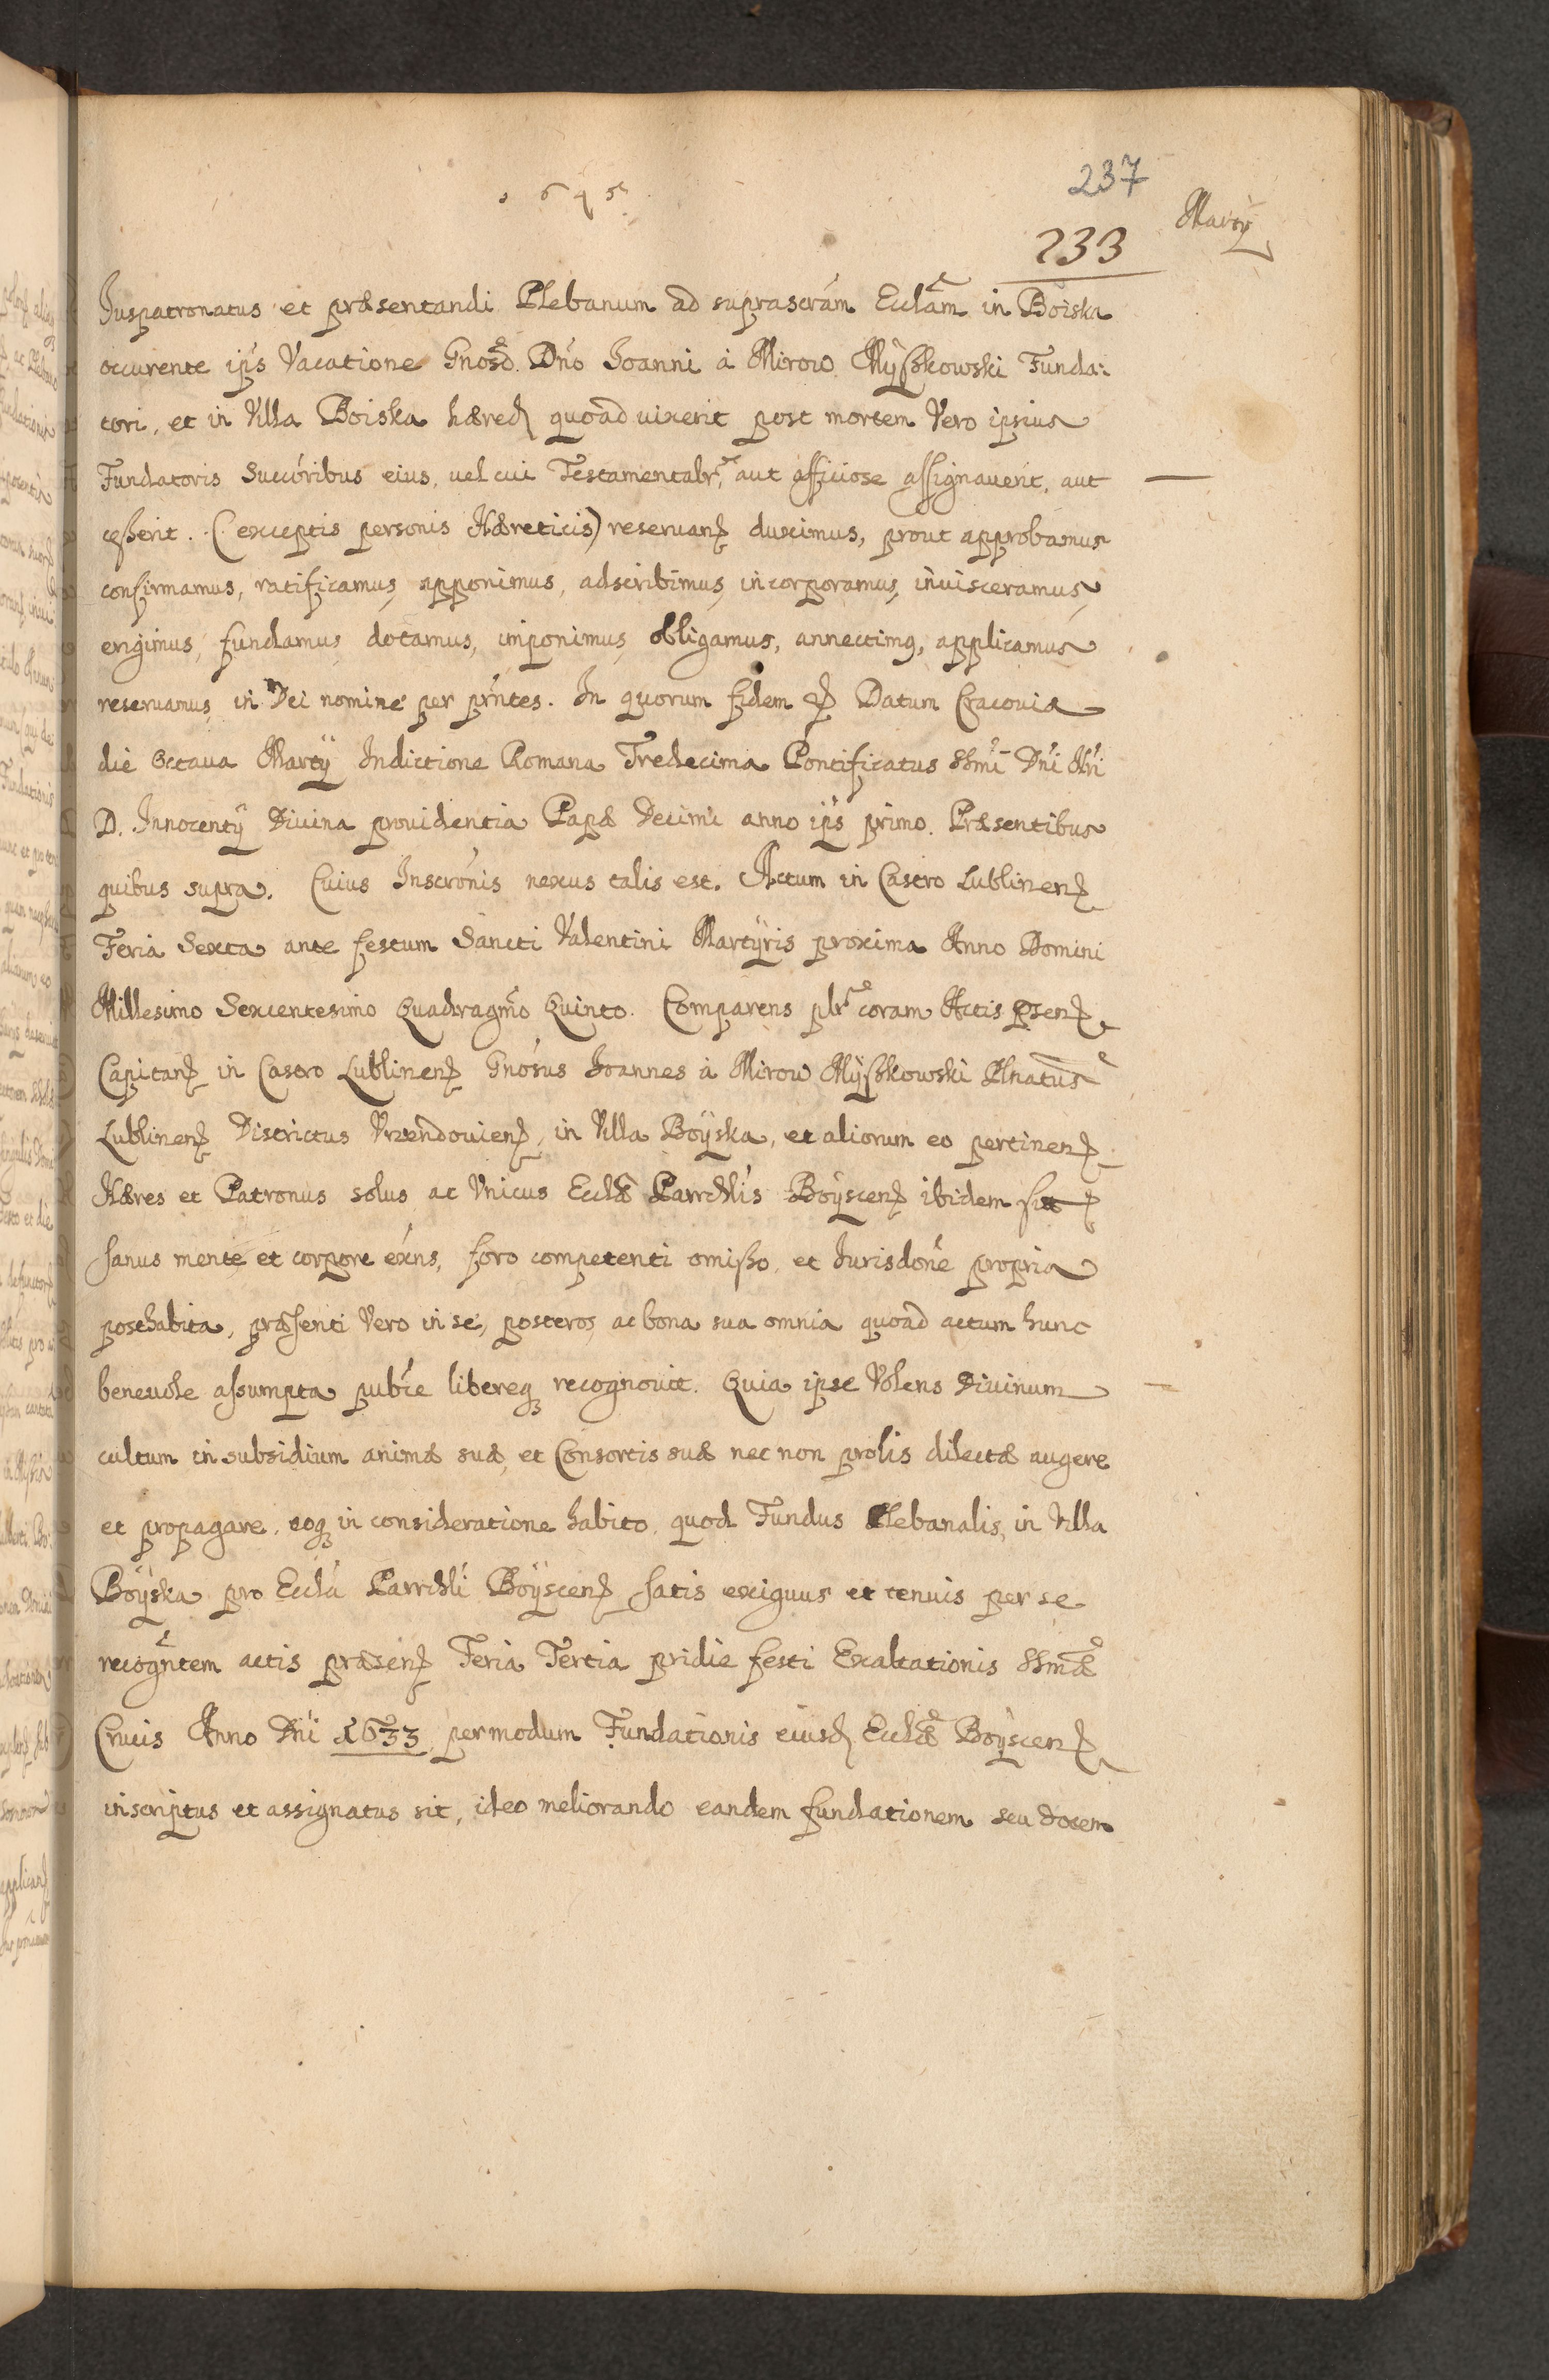 1645
237
233
Martÿ
Juspatronatus et præsentandi Plebanum ad suprascrám Ecclãm in Boiska
occurente ips Vacatione Gnoso Dno Joanni à Mirow Myszkowski Funda:
tori, et in Villa Boiska hæred quoad vixerit post mortem Vero ipsius
Fundatoris Succoribus eius, vel cui Testamentalr, aut officiose assignaverit, aut
cesserit. (exceptis personis Hæreticis) reservan duximus, prout approbamus
confirmamus, ratificamus, apponimus, adscribimus, incorporamus, invisceramus,
erigimus, fundamus, dotamus, imponimus, obligamus, annectimq, applicamus
reservamus, in Dei nomine per prntes. In quorum fidem Datum Cracoviæ
die octaua Martÿ Indictione Romana Tredecima Pontificatus SSmi Dni Nri
D. Innocentÿ Diuina prouidentia Papæ Decimi anno ips primo. Præsentibus
quibus supra. Cuius Inscronis nexus talis est. Actum in Castro Lublinen
Feria Sexta ante festum Sancti Valentini Martÿris proxima Anno Domini
Millesimo Sexcentesimo Quadragmo Quinto. Comparens plr coram Actis psen
Capitan in Castro Lublinen Gnosus Joannes à Mirow Mÿszkowski Plnatus
Lublinen Districtus Vrzendouien, in Villa Boÿska, et aliorum eo pertinen
Hæres et Patronus solus ac Vnicus Ecclæ Parrchlis Boÿscen ibidem
sanus mente et corpore exns, foro competenti omisso, et Jurisdone propria
posthabita, præsenti Vero in se, posteros, ac bona sua omnia quoad actum hunc
beneuole assumpta pubce libereq recognouit. Quia ipse Volens Diuinum
cultum in subsidium animæ suæ, et Consortis suæ nec non prolis dilectæ augere
et propagare, eoq in consideratione habito, quod Fundus Plebanalis, in Villa
Boÿska pro Eccla Parrchli Boÿscen satis exiguus et tenuis per se
recogntem actis præsen Feria Tertia pridie festi Exaltationis SSmæ
Crucis Anno Dni 1633 per modum Fundationis eiusd Ecclæ Boÿscen
inscriptus et assignatus sit, ideo meliorando eandem fundationem seu dotem